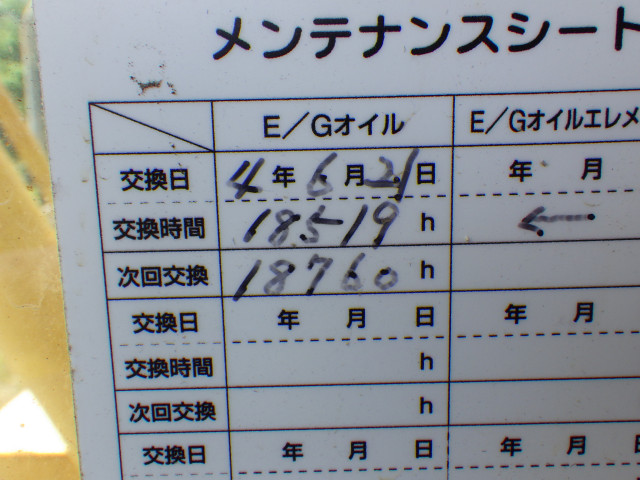 メンテナンスシート
E／Gオイル E／Gオイルエレメ
交換日 4年 6月 21日 年 月
交換時間 18519 h ←
次回交換 18760 h
交換日 年 月 日 年 月
交換時間 h
次回交換 h
交換日 年 月 日 年 月 日